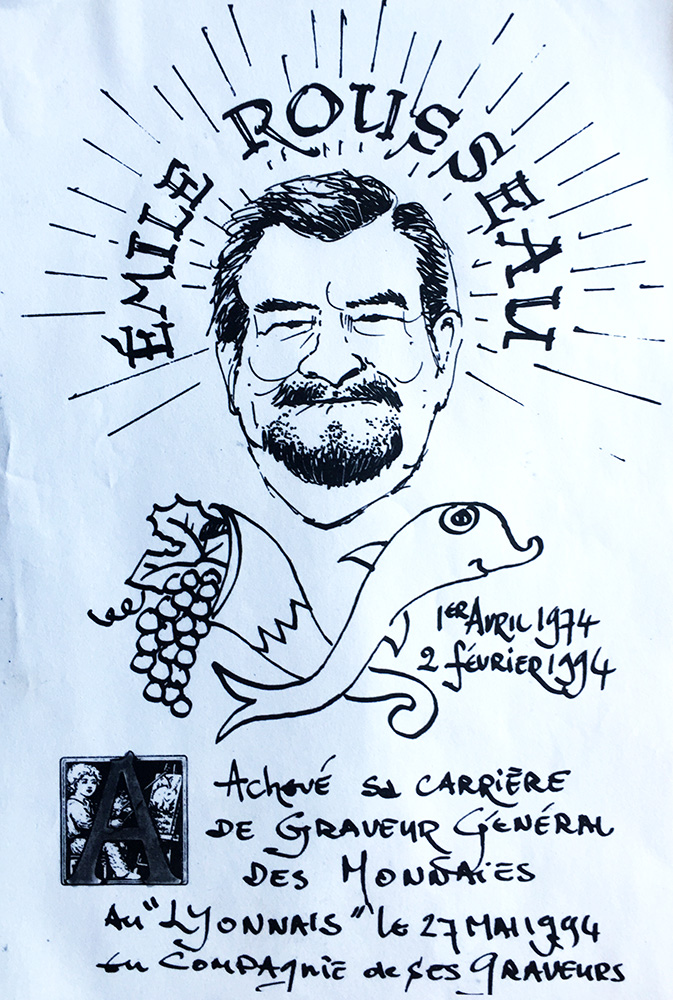 ÉMILE ROUSSEAU
1ER AVRIL 1974
2 février 1994
A Achevé sa CARRIÈRE
DE GRAVEUR GÉNÉRAL
DES MONNAIES
AU "LYONNAIS" le 27 MAI 1994
en COMPAgnie de ses GRAVEURS